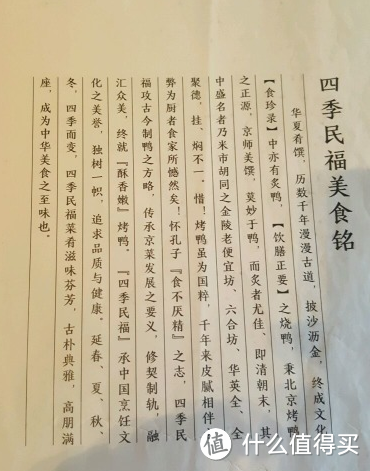 四季民福美食铭
华夏肴馔，历数千年漫漫古道，披沙沥金，终成文化
【食珍录】中亦有炙鸭，【饮膳正要】之烧鸭，秉北京烤鸭
之正源，京师美馔，莫妙于鸭，而炙者尤佳、即清朝末，其
中盛名者乃米市胡同之金陵老便宜坊、六合坊、华英全、全
聚德，挂、焖不一。惜！烤鸭虽为国粹，千年来皮腻相伴
弊为厨者食家所憾然矣！怀孔子『食不厌精』之志，四季民
福攻古今制鸭之方略，传承京菜发展之要义，修契制轨，融
汇众美，终就『酥香嫩』烤鸭。『四季民福』承中国烹饪文
化之美誉，独树一帜，追求品质与健康。延春、夏、秋、
冬，四季而变，四季民福菜肴滋味芬芳，古朴典雅，高朋满
座，成为中华美食之至味也。
值 什么值得买